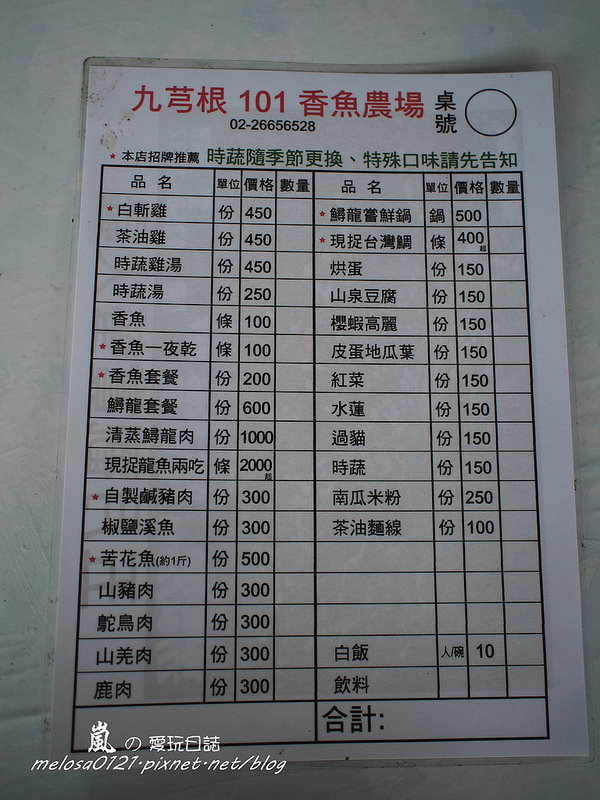 九芎根 101 香魚農場 桌號
02-26656528
★本店招牌推薦 時蔬隨季節更換、特殊口味請先告知
品名 單位 價格 數量 品名 單位 價格 數量
★白斬雞 份 450 ★鱘龍嘗鮮鍋 鍋 500
茶油雞 份 450 ★現捉台灣鯛 條 400起
時蔬雞湯 份 450 烘蛋 份 150
時蔬湯 份 250 山泉豆腐 份 150
香魚 條 100 櫻蝦高麗 份 150
★香魚一夜乾 條 100 皮蛋地瓜葉 份 150
★香魚套餐 份 200 紅菜 份 150
鱘龍套餐 份 600 水蓮 份 150
清蒸鱘龍肉 份 1000 過貓 份 150
現捉龍魚兩吃 條 2000起 時蔬 份 150
★自製鹹豬肉 份 300 南瓜米粉 份 250
椒鹽溪魚 份 300 茶油麵線 份 100
★苦花魚(約1斤) 份 500
山豬肉 份 300
鴕鳥肉 份 300
山羌肉 份 300 白飯 人/碗 10
鹿肉 份 300 飲料
合計:
嵐の愛玩日誌
melosa0121.pixnet.net/blog